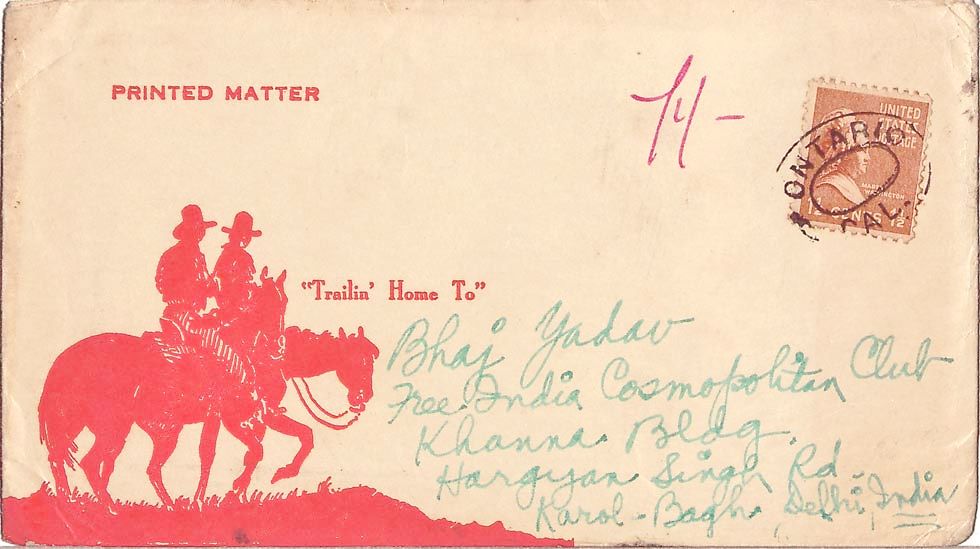 PRINTED MATTER
14-
UNITED
STATES
POSTAGE
MARTHA
WASHINGTON
1½ CENTS 1½
ONTARIO
CAL.
"Trailin' Home To"
Bhaj Yadav
Free India Cosmopolitan Club
Khanna Bldg.
Hargyan Singh Rd
Karol-Bagh, Delhi, India